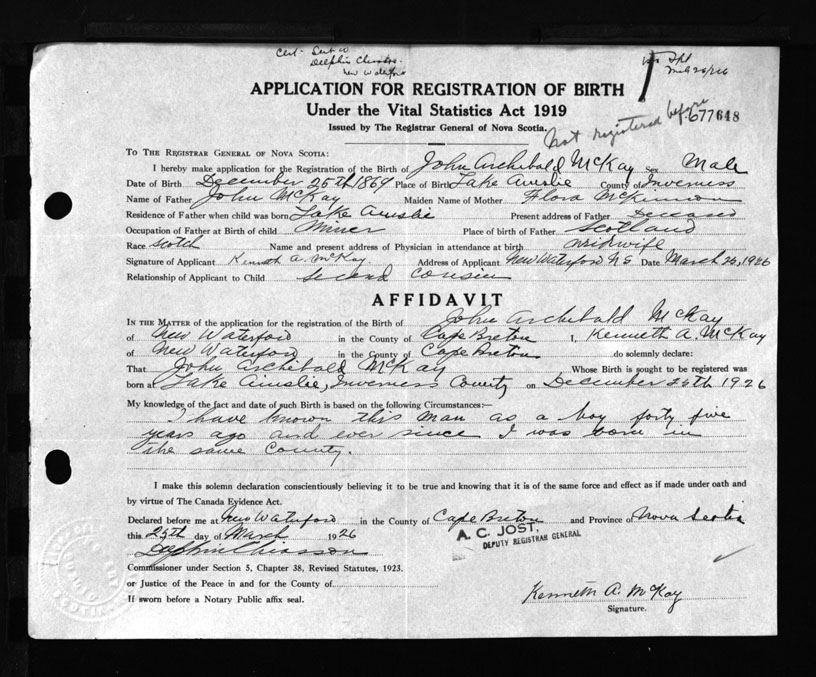 Cert - Sent to
Delphin Chiasson
New Waterford
Mch 26/26
APPLICATION FOR REGISTRATION OF BIRTH
Under the Vital Statistics Act 1919
Issued by The Registrar General of Nova Scotia.
Not registered before
677648
TO THE REGISTRAR GENERAL OF NOVA SCOTIA:
I hereby make application for the Registration of the Birth of John Archibald McKay Sex Male
Date of Birth December 25th 1869 Place of Birth Lake Ainslie County of Inverness
Name of Father John McKay Maiden Name of Mother Flora McKinnon
Residence of Father when child was born Lake Ainslie Present address of Father Deceased
Occupation of Father at Birth of child Miner Place of birth of Father Scotland
Race Scotch Name and present address of Physician in attendance at birth Midwife
Signature of Applicant Kenneth A. McKay. Address of Applicant New Waterford N S Date March 26, 1926
Relationship of Applicant to Child Second Cousin
AFFIDAVIT
IN THE MATTER of the application for the registration of the Birth of John Archibald McKay
of New Waterford in the County of Cape Breton I, Kenneth A. McKay
of New Waterford in the County of Cape Breton do solemnly declare:
That John Archibald McKay Whose Birth is sought to be registered was
born at Lake Ainslie, Inverness County on December 25th 1926
My knowledge of the fact and date of such Birth is based on the following Circumstances:—
I have known this man as a boy forty five
years ago and ever since I was born in
the same County.
I make this solemn declaration conscientiously believing it to be true and knowing that it is of the same force and effect as if made under oath and
by virtue of The Canada Evidence Act.
Declared before me at New Waterford in the County of Cape Breton and Province of Nova Scotia
this 25th day of March 1926
A. C. JOST,
DEPUTY REGISTRAR GENERAL
Delphin Chiasson
Commissioner under Section 5, Chapter 38, Revised Statutes, 1923.
or Justice of the Peace in and for the County of
If sworn before a Notary Public affix seal.
Kenneth A. McKay
Signature.